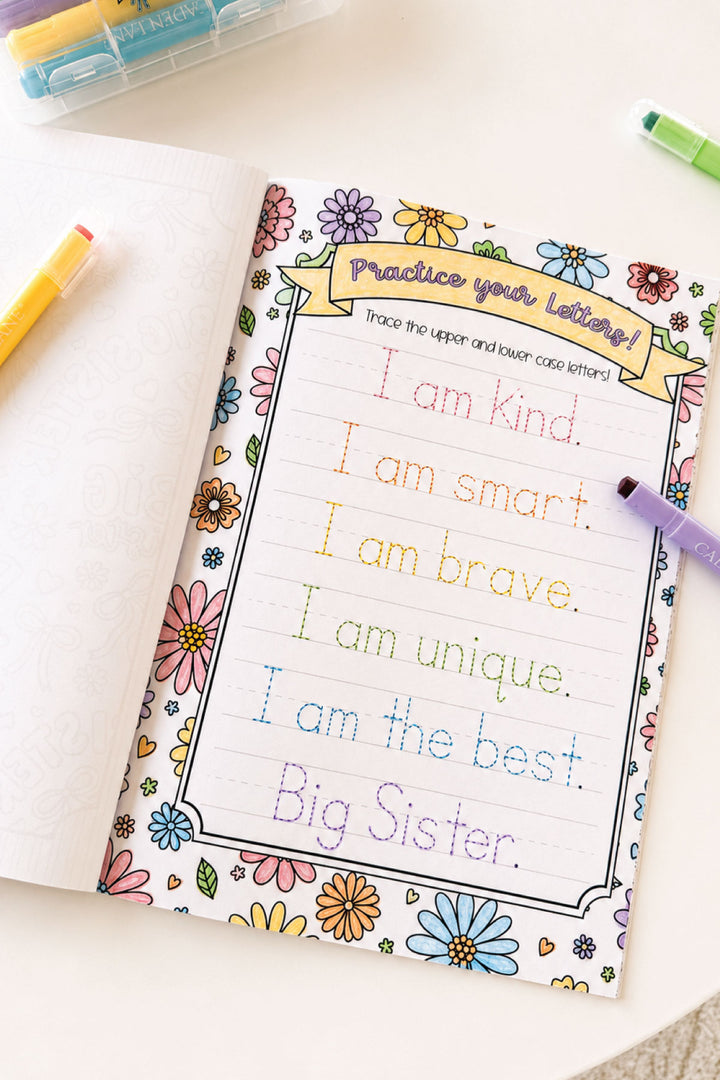 CADEN LAN
Practice your Letters!
Trace the upper and lower case letters!
I am kind.
I am smart.
I am brave.
I am unique.
I am the best.
Big Sister.